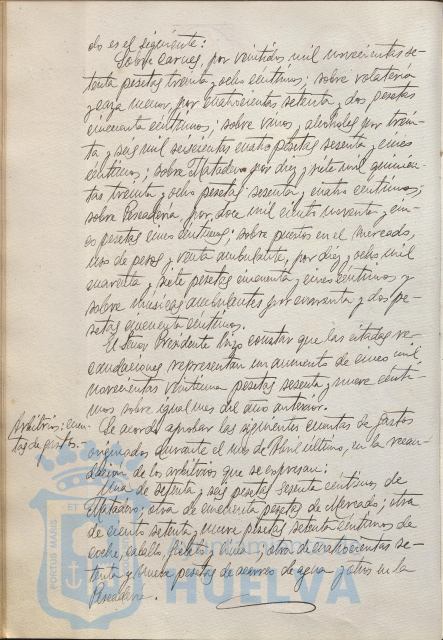 do es el siguiente:
Sobre carnes, por veintidos mil novecientas se-
tenta pesetas treinta y ocho centimos; sobre volateria
y caza menor, por cuatrocientas setenta y dos pesetas
cincuenta centimos; sobre vinos y alcoholes por trein-
ta y seis mil seiscientas cuatro pesetas sesenta y cinco
centimos; sobre Matadero por diez y siete mil quinien-
tas treinta y ocho pesetas sesenta y cuatro centimos;
sobre Pescaderia, por doce mil ciento noventa y cin-
co pesetas cinco centimos; sobre puestos en el mercado,
uso de pesas y venta ambulante, por diez y ocho mil
cuarenta y siete pesetas cincuenta y cinco centimos y
sobre musicas ambulantes por cuarenta y dos pe-
setas cincuenta centimos.
El Señor Presidente hizo constar que las citadas re-
caudaciones representan un aumento de cinco mil
novecientas veintiuna pesetas sesenta y nueve centi-
mos sobre igual mes del año anterior.
Arbitrios: cuen-
tas de gastos.
Se acordo aprobar las siguientes cuentas de gastos
originados durante el mes de Abril último, en la recau-
dación de los arbitrios que se expresan:
Una de setenta y seis pesetas sesenta centimos de
Matadero; otra de cincuenta pesetas de Mercado; otra
de ciento setenta y nueve pesetas setenta centimos de
coche, caballo, y otra de cuatrocientas se-
tenta y nueve pesetas de acarreo de agua y otros en la
Pescaderia.
PORTUS MARIS ET
HUELVA